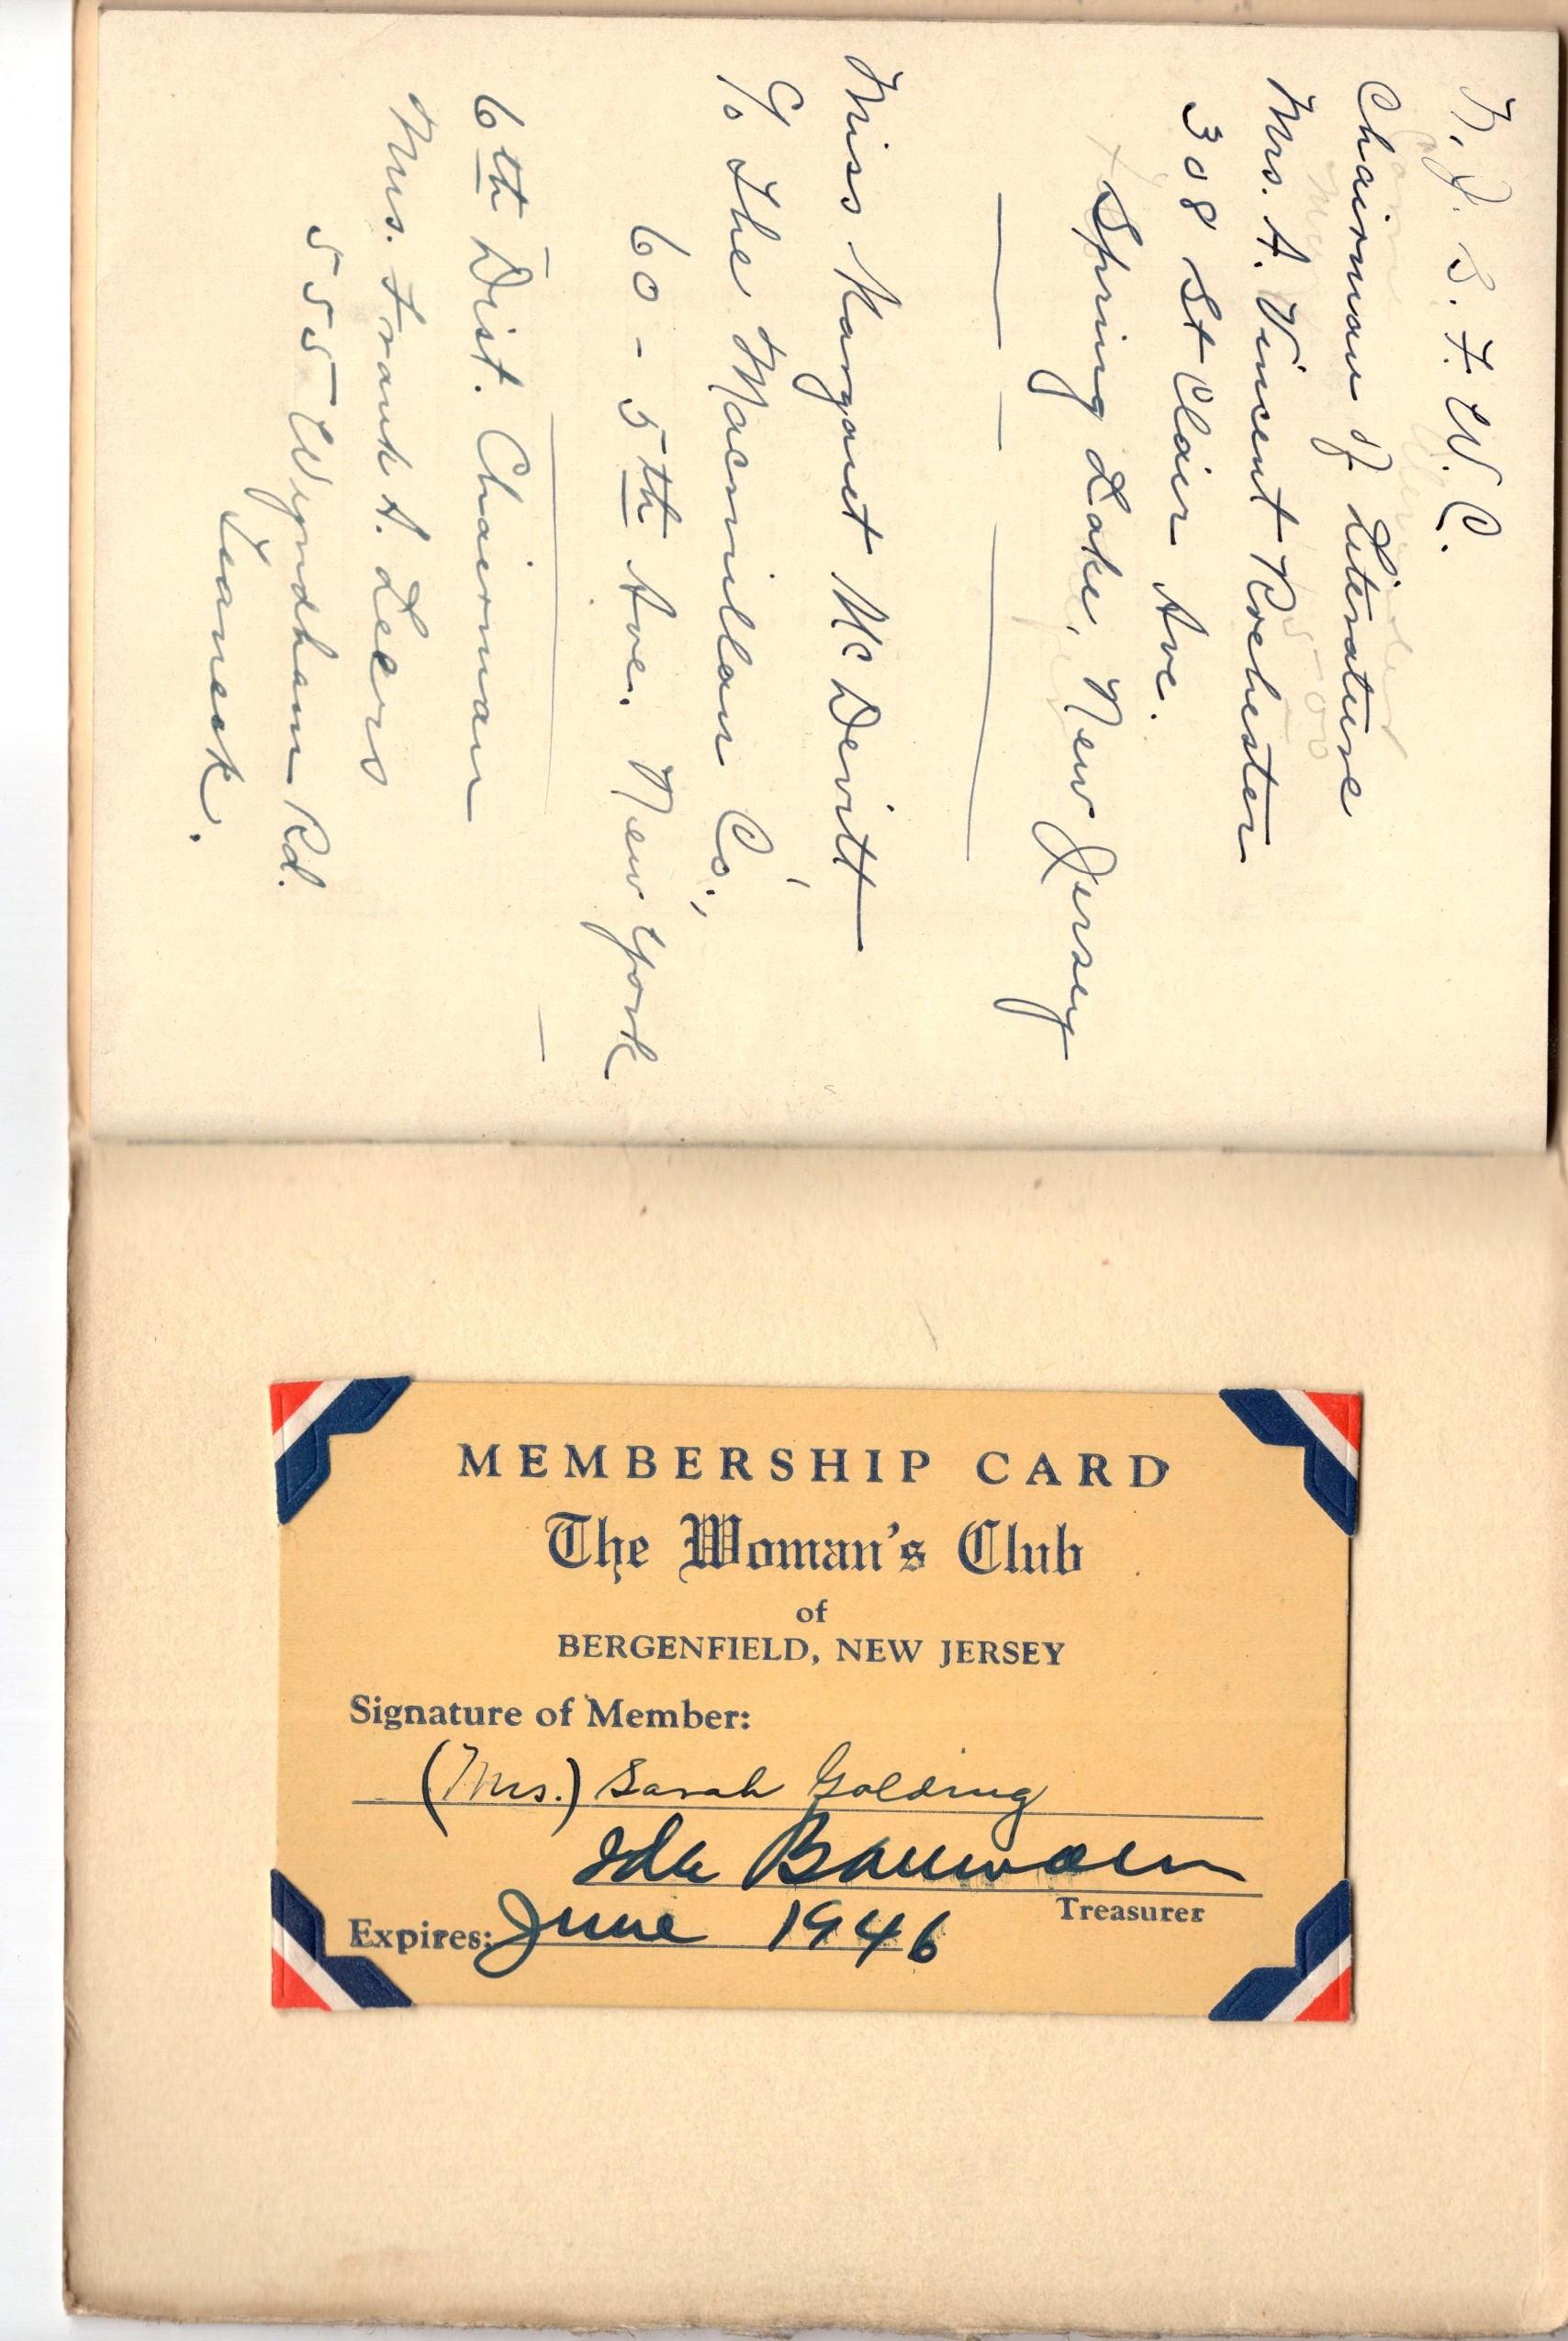 N. J. S. F. W. C.
Chairman of Literature
Mrs. A. Vincent Rochester
308 St Clair Ave.
Spring Lake, New Jersey
Miss Margaret McDevitt
c/o The Macmillan Co.,
60 - 5th Ave. New York
6th Dist. Chairman
Mrs. Frank A. Leers
555 Wyndham Rd.
Teaneck.
MEMBERSHIP CARD
The Woman's Club
of
BERGENFIELD, NEW JERSEY
Signature of Member:
(Mrs.) Sarah Goldring
Ida
Treasurer
Expires: June 1946